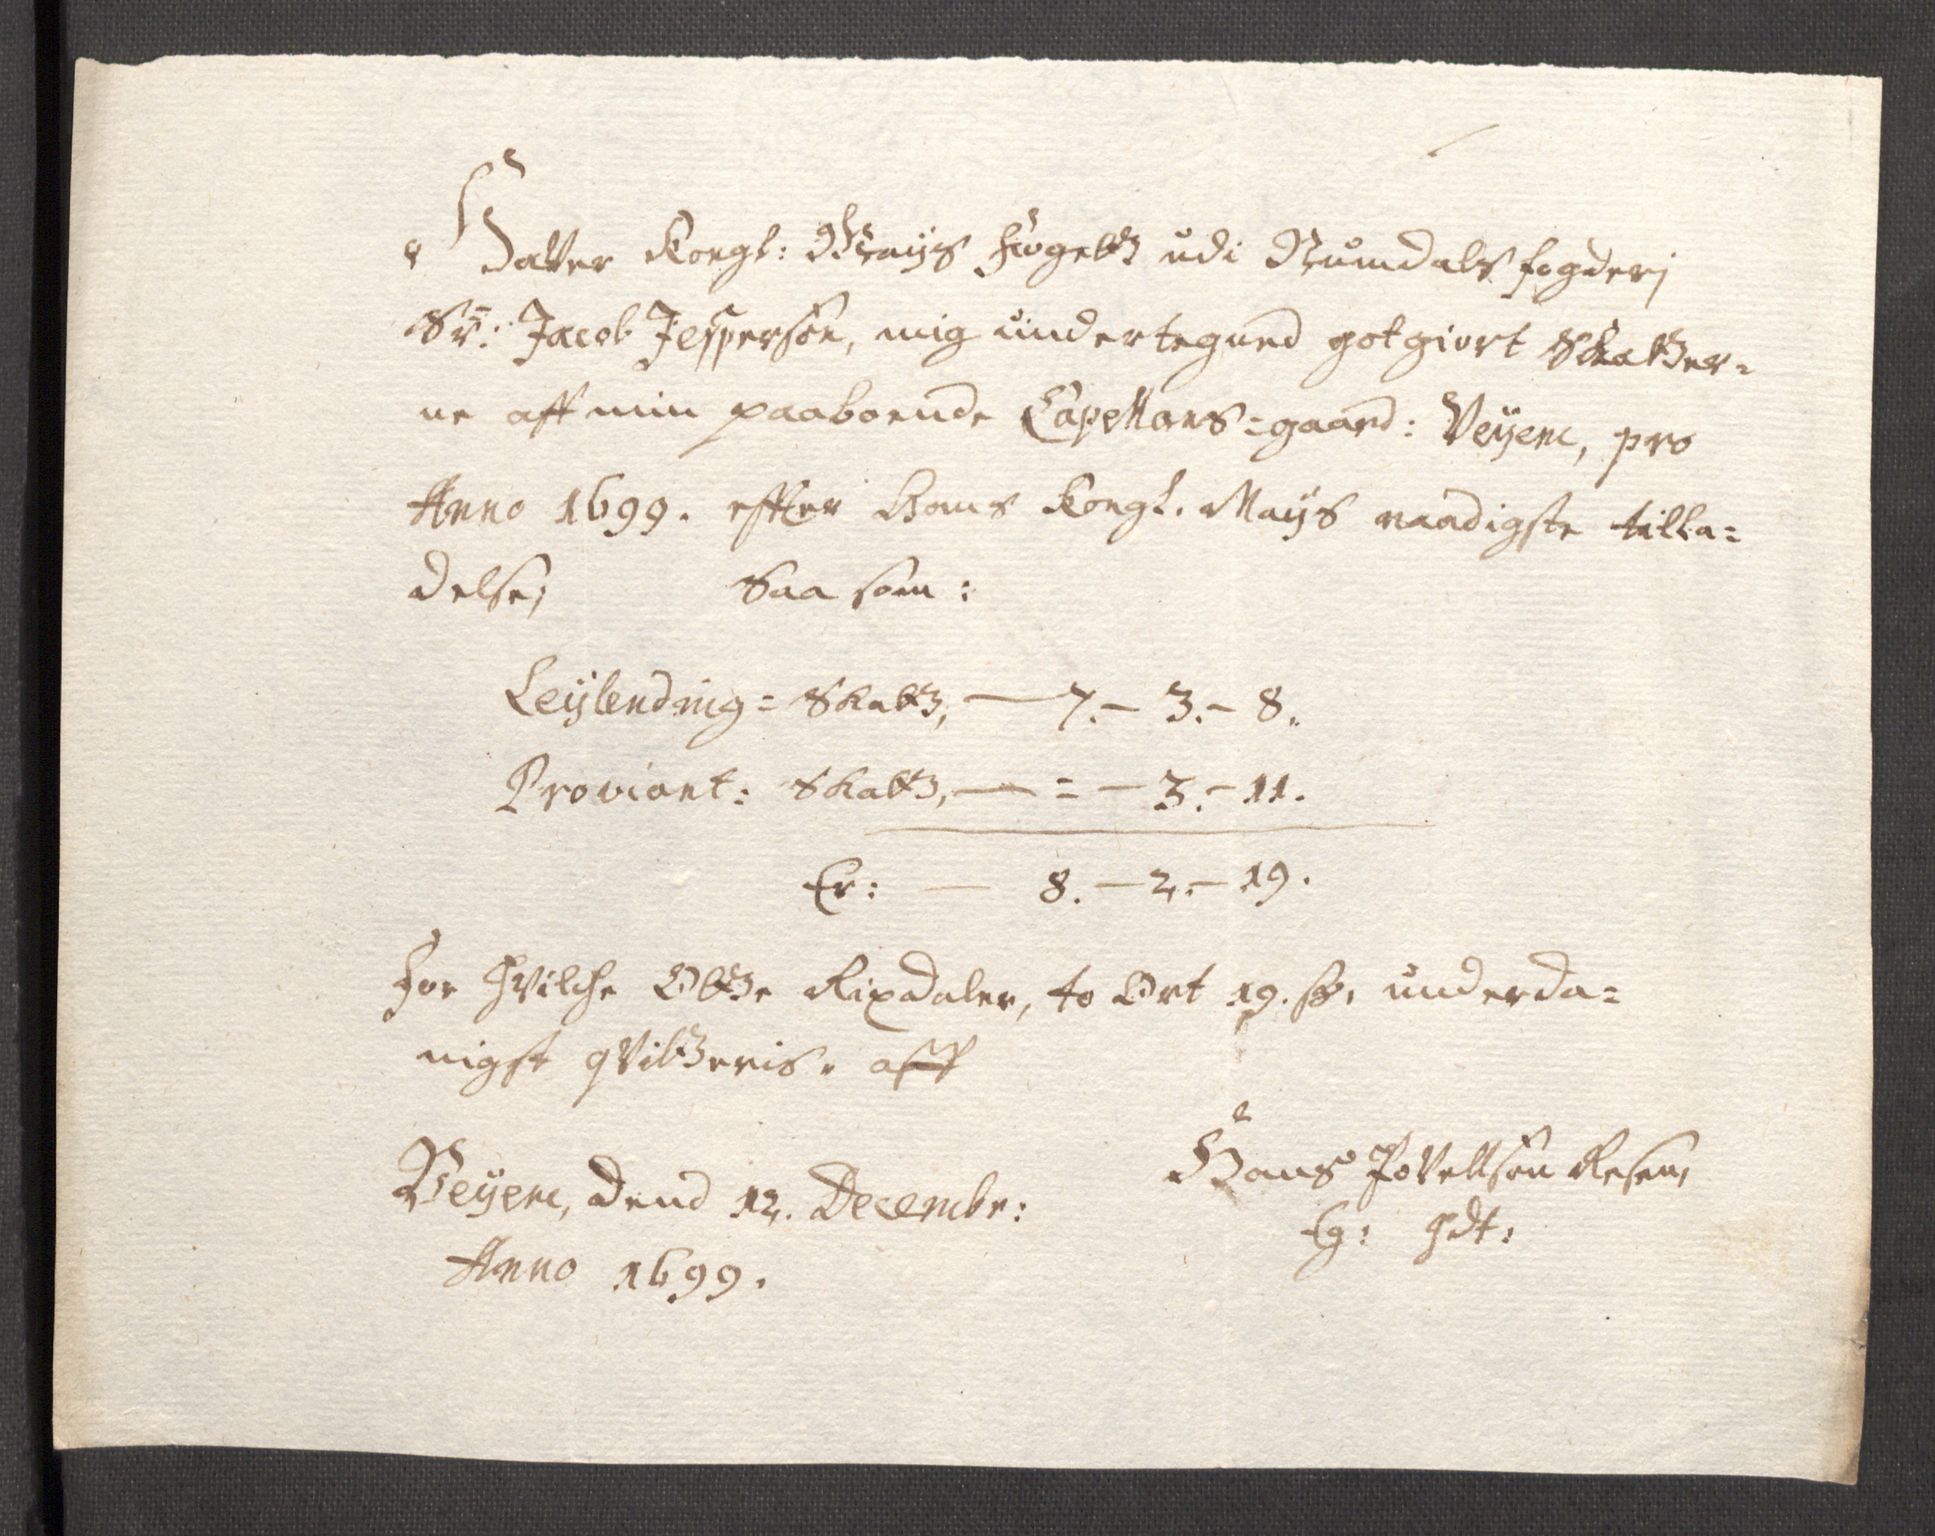 Hafver Kongl: Maÿs fogett udi Numdals fogderj
Sr: Jacob Jespersøn, mig undertegned gotgiort Skatter=
ne aff min paaboende Capellans=gaard: Veÿem, pro
Anno 1699. effter Hans Kongl. Maÿs naadigste tilla=
delse, Saa som:
Leÿlending= Skatt, — 7.— 3.— 8.
Proviant: Skatt, — = — 3.— 11.
Er: — 8.— 2.— 19.
For hvilche Otte Rixdaler, to Ort 19. ß, underda=
nigst qvitteris. aff
Veÿem, dend 12. Decembr:
Anno 1699.
Hans Povelsøn Resen,
Eg: hdt: